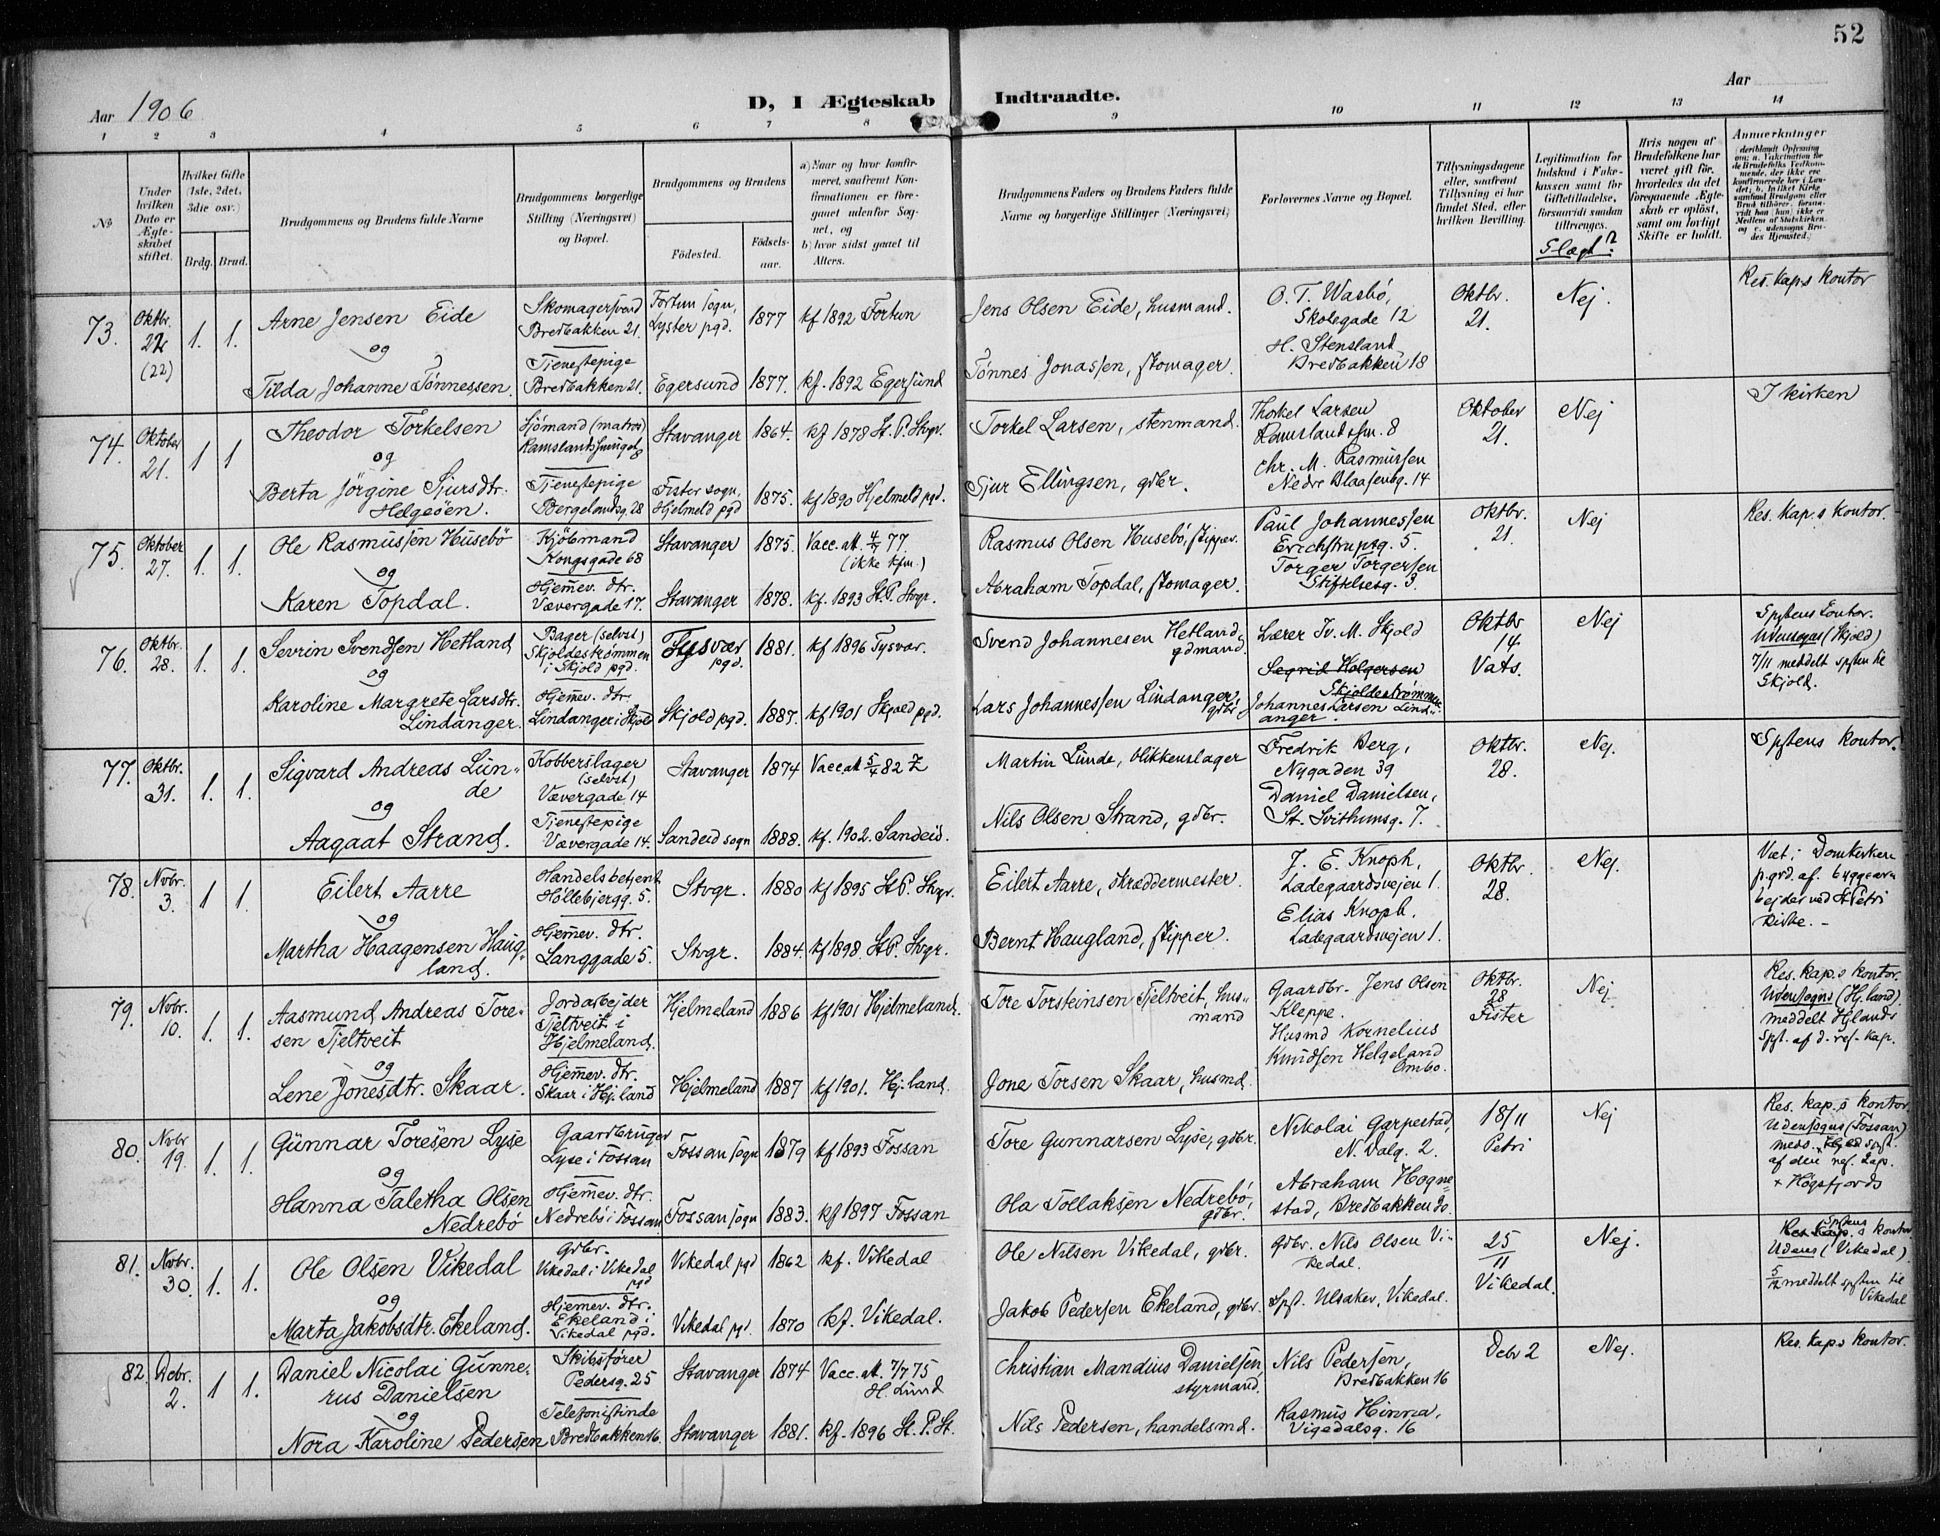 52
Aar 1906
D, I Ægteskab Indtraadte.
Aar
1 2 3 4 5 6 7 8 9 10 11 12 13 14
No
Under hvilken Dato er Ægteskabet stiftet.
Hvilket Gifte (1ste, 2det, 3die osv.)
Brdg. Brud.
Brudgommens og Brudens fulde Navne
Brudgommens borgerlige Stilling (Næringsvei) og Bopæl.
Brudgommens og Brudens
Fødested.
Fødselsaar.
a) Naar og hvor konfirmeret, saafremt Konfirmationen er foregaaet udenfor Sognet, og
b) hvor sidst gaaet til Alters.
Brudgommens Faders og Brudens Faders fulde Navne og borgerlige Stillinger (Næringsvei)
Forlovernes Navne og Bopæl.
Tillysningsdagene eller, saafremt Tillysning ei har fundet Sted, efter hvilken Bevilling.
Legitimation for Indskud i Enkekassen samt for Giftetilladelse, forsaavidt saadan tiltrænges.
Slægt?
Hvis nogen af Brudefolkene har været gift før, hvorledes da det foregaaende Ægteskab er opløst, samt om lovligt Skifte er holdt.
Anmærkninger
73. Oktbr. 22 (22) 1. 1.
Arne Jensen Eide
og
Tilda Johanne Tønnessen.
Skomagersvend
Bredbakken 21.
Tjenestepige
Bredbakken 21.
Fortun sogn,
Lyster pgd.
Egersund
1877
1877.
kf 1892 Fortun
kf. 1892 Egersund
Jens Olsen Eide, husmand.
Tønnes Jonassen, skomager.
O. T. Wasbø,
Skolegade 12
H. Stensland
Bredbakken 18
Oktbr.
21.
Nej.
Res. kap.s kontor
74. Oktober 21. 1 1
Theodor Torkelsen
og
Berta Jørgine Sjursdtr.
Helgeøen.
Sjømand (matros)
8
Tjenestepige
Bergelandsg. 28
Stavanger
Fister sogn,
Hjelmeld pgd
1864.
1875.
kf 1878 St. P. Stvgr.
kf 1890 Hjelmeld pgd.
Torkel Larsen, stenmand.
Sjur Ellingsen, gdbr.
Thorkel Larsen
8
Chr. M. Rasmussen
Nedre Blaasenbg. 14
Oktober
21.
Nej
I kirken
75. Oktober 27. 1. 1.
Ole Rasmussen Husebø
og
Karen Topdal.
Kjøbmand
Kongsgade 68
Hjemev. dtr.
Vævergade 17.
Stavanger
Stavanger
1875.
1878.
Vacc. att. 4/7 77.
(ikke kfm.)
kf. 1893 St. P. Stvgr.
Rasmus Olsen Husebø, skipper.
Abraham Topdal, skomager.
Paul Johannessen
Erichstrupsg. 5.
Torger Torgersen
Stiftelsesg. 3.
Oktbr.
21.
Nej
Res. kap.s kontor.
76. Oktbr. 28. 1. 1.
Sevrin Svendsen Hetland
og
Karoline Margrete Larsdtr.
Lindanger.
Bager (selvst)
Skjoldestrømmen
i Skjold pgd.
Hjemev. dtr.
Lindanger i Skjold
Tysvær
pgd.
Skjold pgd.
1881.
1887.
kf 1896 Tysvær.
kf 1901 Skjold pgd.
Svend Johannesen Hetland,
gdmand.
Lars Johannessen Lindanger,
gdbr
Lærer Iv. M. Skjold
Segrid Holgersen
Skjoldestrømmen
Johannes Larsen Lind-
anger.
Oktbr
14
Vats.
Nej
Spstens kontor.
Udensogns (Skjold)
7/11 meddelt spsten til
Skjold.
77. Oktbr. 31. 1. 1.
Sigvard Andreas Lun-
de
og
Aagaat Strand.
Kobberslager
(selvst)
Vævergade 14
Tjenestepige
Vævergade 14.
Stavanger
Sandeid sogn
1874
1888.
Vacc att 5/4 82
kf. 1902. Sandeid.
Martin Lunde, blikkenslager
Nils Olsen Strand, gdbr.
Fredrik Berg,
Nygaden 39
Daniel Danielsen,
St. Svithunsg. 7.
Oktbr.
28.
Nej.
Spstens kontor.
78. Novbr. 3. 1 1.
Eilert Aarre
og
Martha Haagensen Haug-
land.
Handelsbetjent
Høllebjergg. 5.
Hjemev. dtr.
Langgade 5.
Stvgr.
Stvgr.
1880
1884.
kf 1895 St. P. Stvgr.
kf 1898. St. P. Stvgr.
Eilert Aarre, skræddermester.
Bernt Haugland, skipper.
J. E. Knoph,
Ladegaardsvejen 1.
Elias Knoph.
Ladegaardsvejen 1.
Oktbr
28.
Nej.
Viet i Domkirken
p. grd. af byggear-
bejder ved St Petri
kirke.
79. Novbr. 10. 1. 1.
Aasmund Andreas Tore-
sen Tjeltveit
og
Lene Jonesdtr. Skaar.
Jordarbejder
Tjeltveit i
Hjelmeland.
Hjemev. dtr.
Skaar i Hj.land
Hjelmeland
Hjelmeland
1886
1887
kf 1901 Hjelmeland.
kf 1901. Hj.land.
Tore Torsteinsen Tjeltveit, hus-
mand
Jone Torsen Skaar, husmd.
Gaardbr. Jens Olsen
Kleppe.
Husmd Kornelius
Knudsen Helgeland
Ombo.
Oktbr.
28
Fister
Nej
Res. kap.s kontor.
Udensogns (Hj.land).
meddelt Hjlands
Spst. af d. res. kap.
80. Novbr 19. 1. 1.
Gunnar Toresen Lyse
og
Hanna Taletha Olsen
Nedrebø
Gaardbruger
Lyse i Fossan
Hjemev. dtr.
Nedrebø i Fossan
Fossan sogn
Fossan sogn
1879
1883.
kf 1893 Fossan
kf 1897 Fossan
Tore Gunnarsen Lyse, gdbr.
Ola Tollaksen Nedrebø,
gdbr.
Nikolai Garpestad,
N. Dalg. 2.
Abraham Hogne-
stad, Bredbakken 20.
18/11
Petri
Nej
Res. kap.s kontor.
Udensogns (Fossan)
af den res. kap.
+ Høgsfjords
81. Novbr. 30. 1. 1.
Ole Olsen Vikedal
og
Marta Jakobsdtr. Ekeland.
Gdbr.
Vikedal i Vikedal
pgd
Hjemev. dtr.
Ekeland i
Vikedal pgd.
Vikedal pgd
Vikedal pgd.
1862
1870
kf. Vikedal
kf. Vikedal.
Ole Nilsen Vikedal, gdbr.
Jakob Pedersen Ekeland, gdbr.
Gdbr. Nils Olsen Vi-
kedal.
Spst. Ulsaker, Vikedal.
25
11
Vikedal.
Nej.
Spstens
Res. kap.s kontor
Udens (Vikedal)
5/12 meddelt spsten til
Vikedal
82. Dcbr. 2. 1 1.
Daniel Nicolai Gunne-
rus Danielsen
og
Nora Karoline Pedersen
Skibsfører
Pedersg. 25
Telefonistinde
Bredbakken 16.
Stavanger
Stavanger
1874
1881.
Vacc. att. 7/7 75
H. Lund
kf. 1896 St. P. St.
Christian Mandius Danielsen,
styrmand.
Nils Pedersen, handelsmd.
Nils Pedersen,
Bredbakken 16
Rasmus Hinna,
Vigedalsg. 16
Debr 2
Nej.
Res. kap.s kontor.